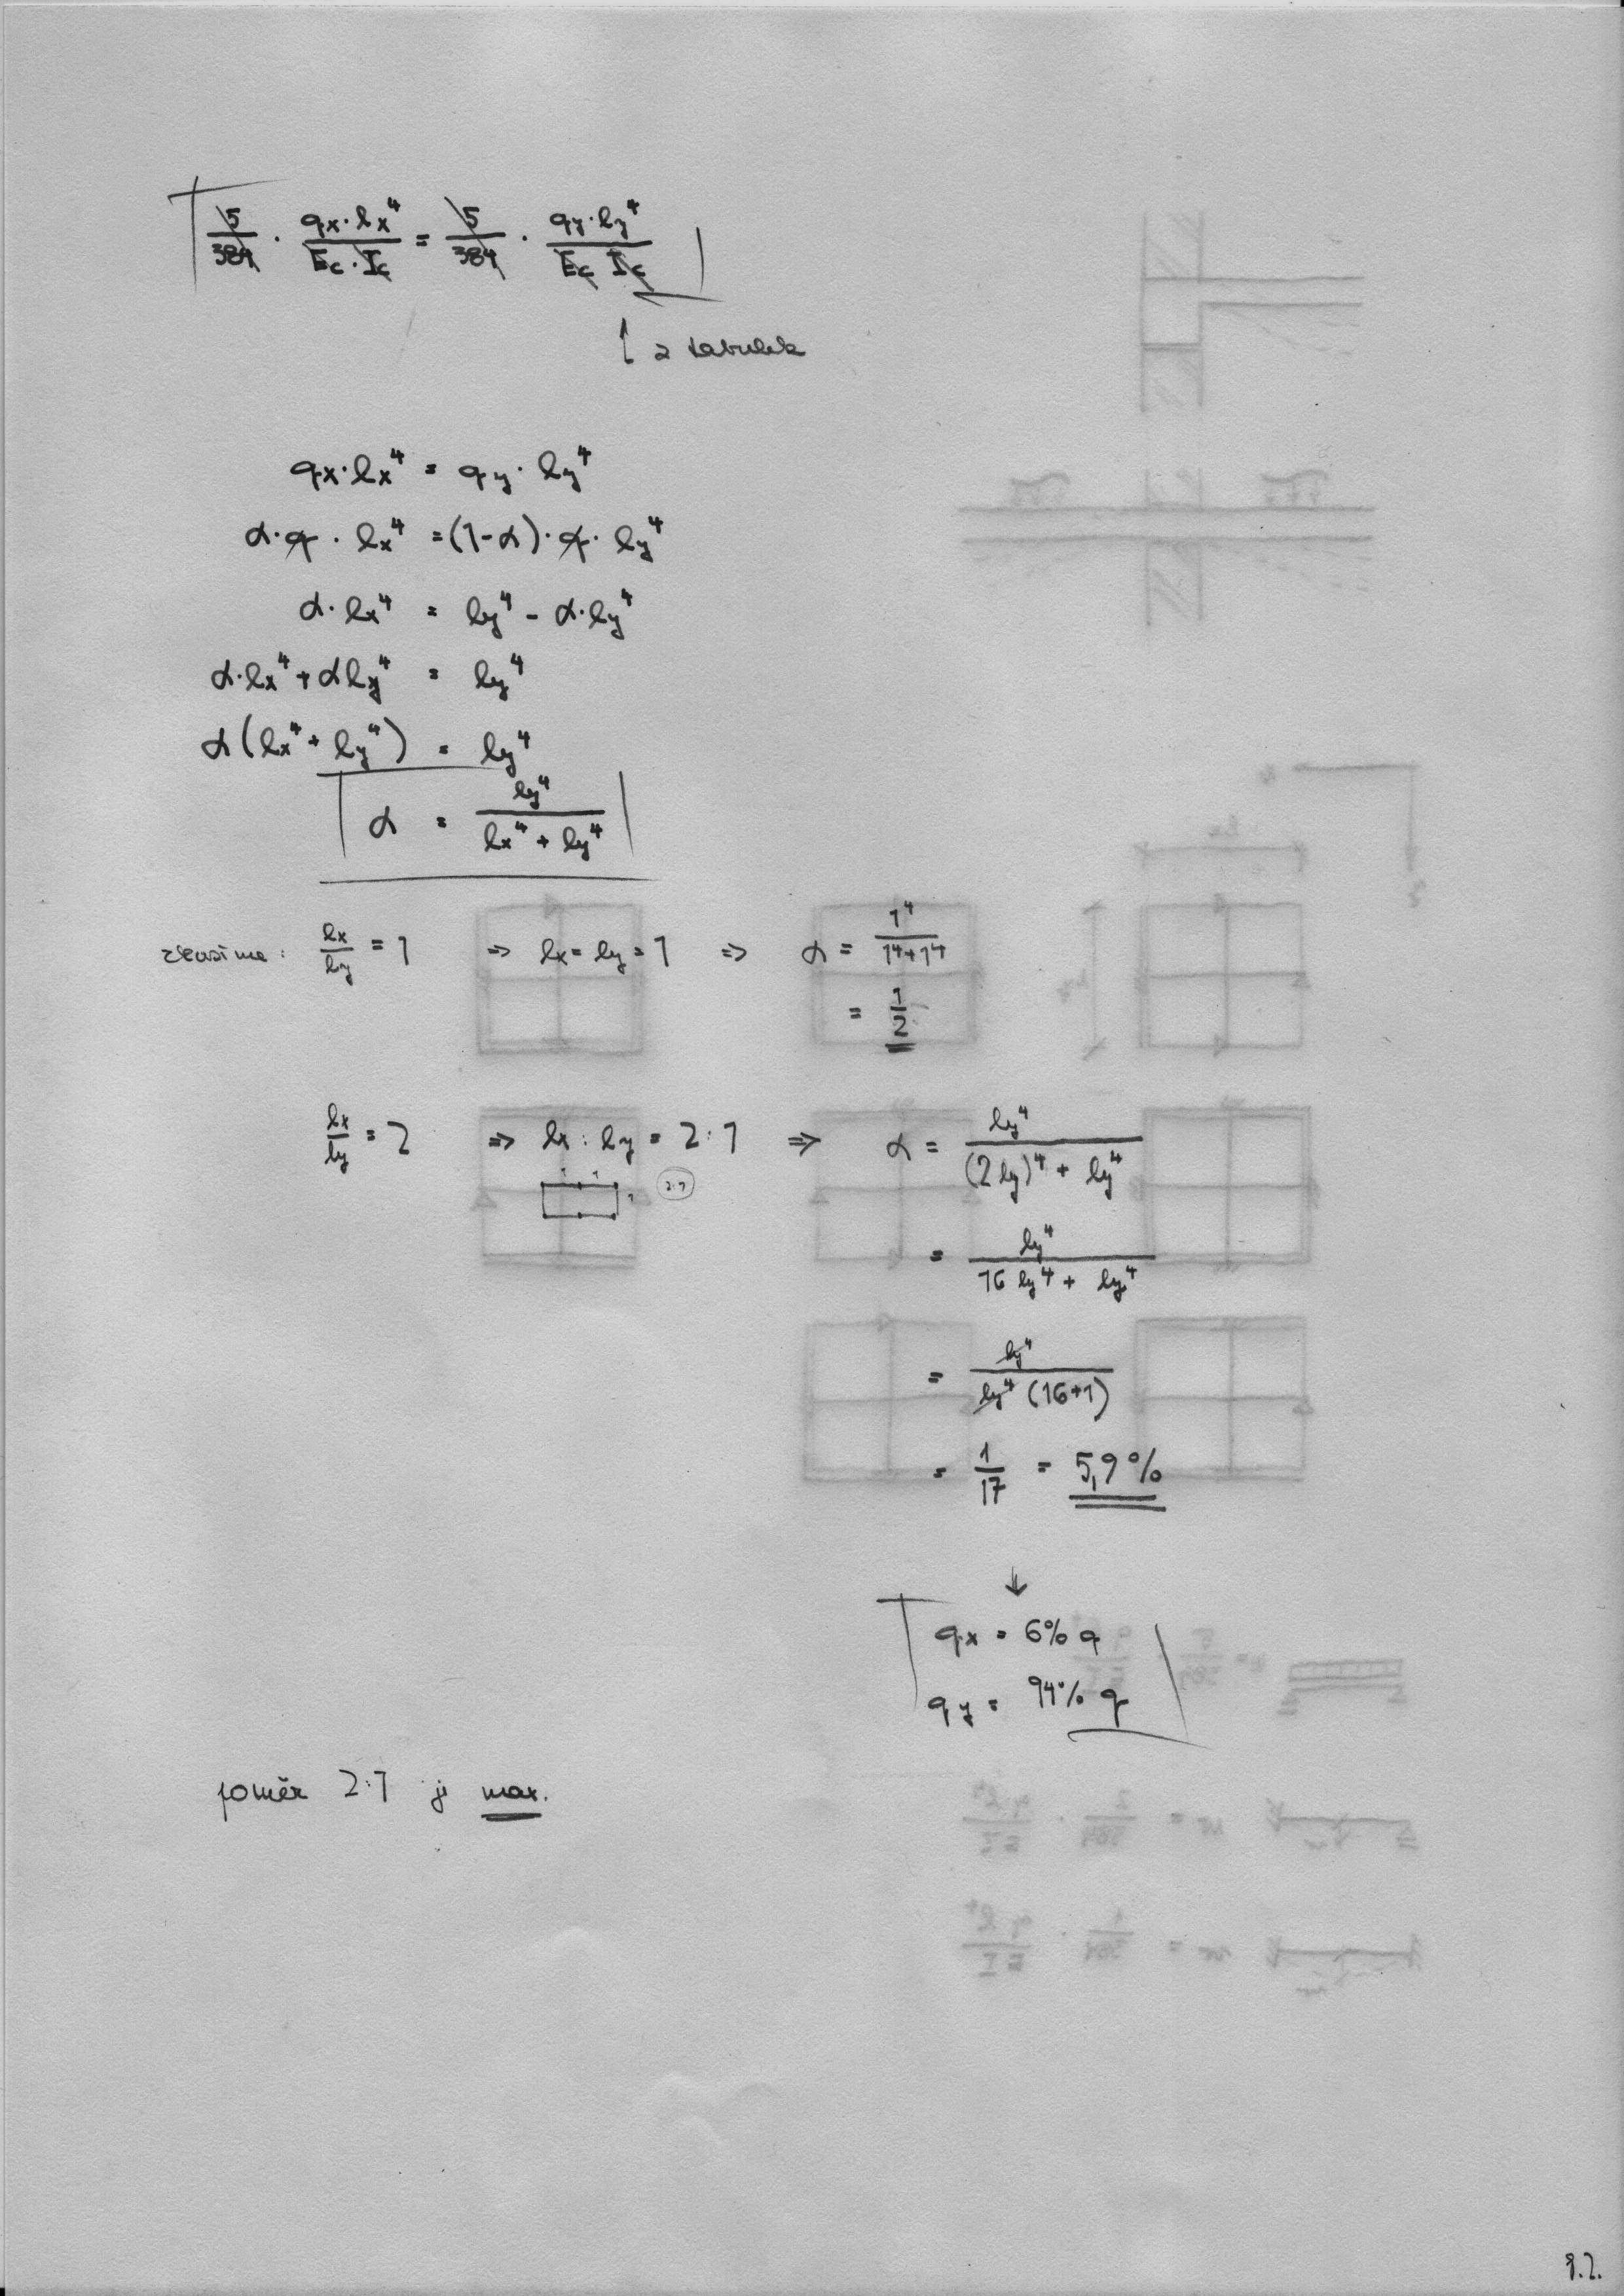 5/384 · qx·lx⁴/Ec·Ic = 5/384 · qy·ly⁴/Ec Ic
↑ z tabulek
qx·lx⁴ = qy·ly⁴
α·q·lx⁴ = (1-α)·q·ly⁴
α·lx⁴ = ly⁴ - α·ly⁴
α·lx⁴ + αly⁴ = ly⁴
α(lx⁴ + ly⁴) = ly⁴
α = ly⁴/lx⁴ + ly⁴
zkusíme: lx/ly = 1 => lx = ly = 1 => α = 1⁴/1⁴+1⁴
= 1/2
lx/ly = 2 => lx : ly = 2:1 => α = ly⁴/(2ly)⁴ + ly⁴
1 1 1 2:1
= ly⁴/16 ly⁴ + ly⁴
= ly⁴/ly⁴ (16+1)
= 1/17 = 5,9%
↓
qx = 6% q
qy = 94% q
poměr 2:1 je max.